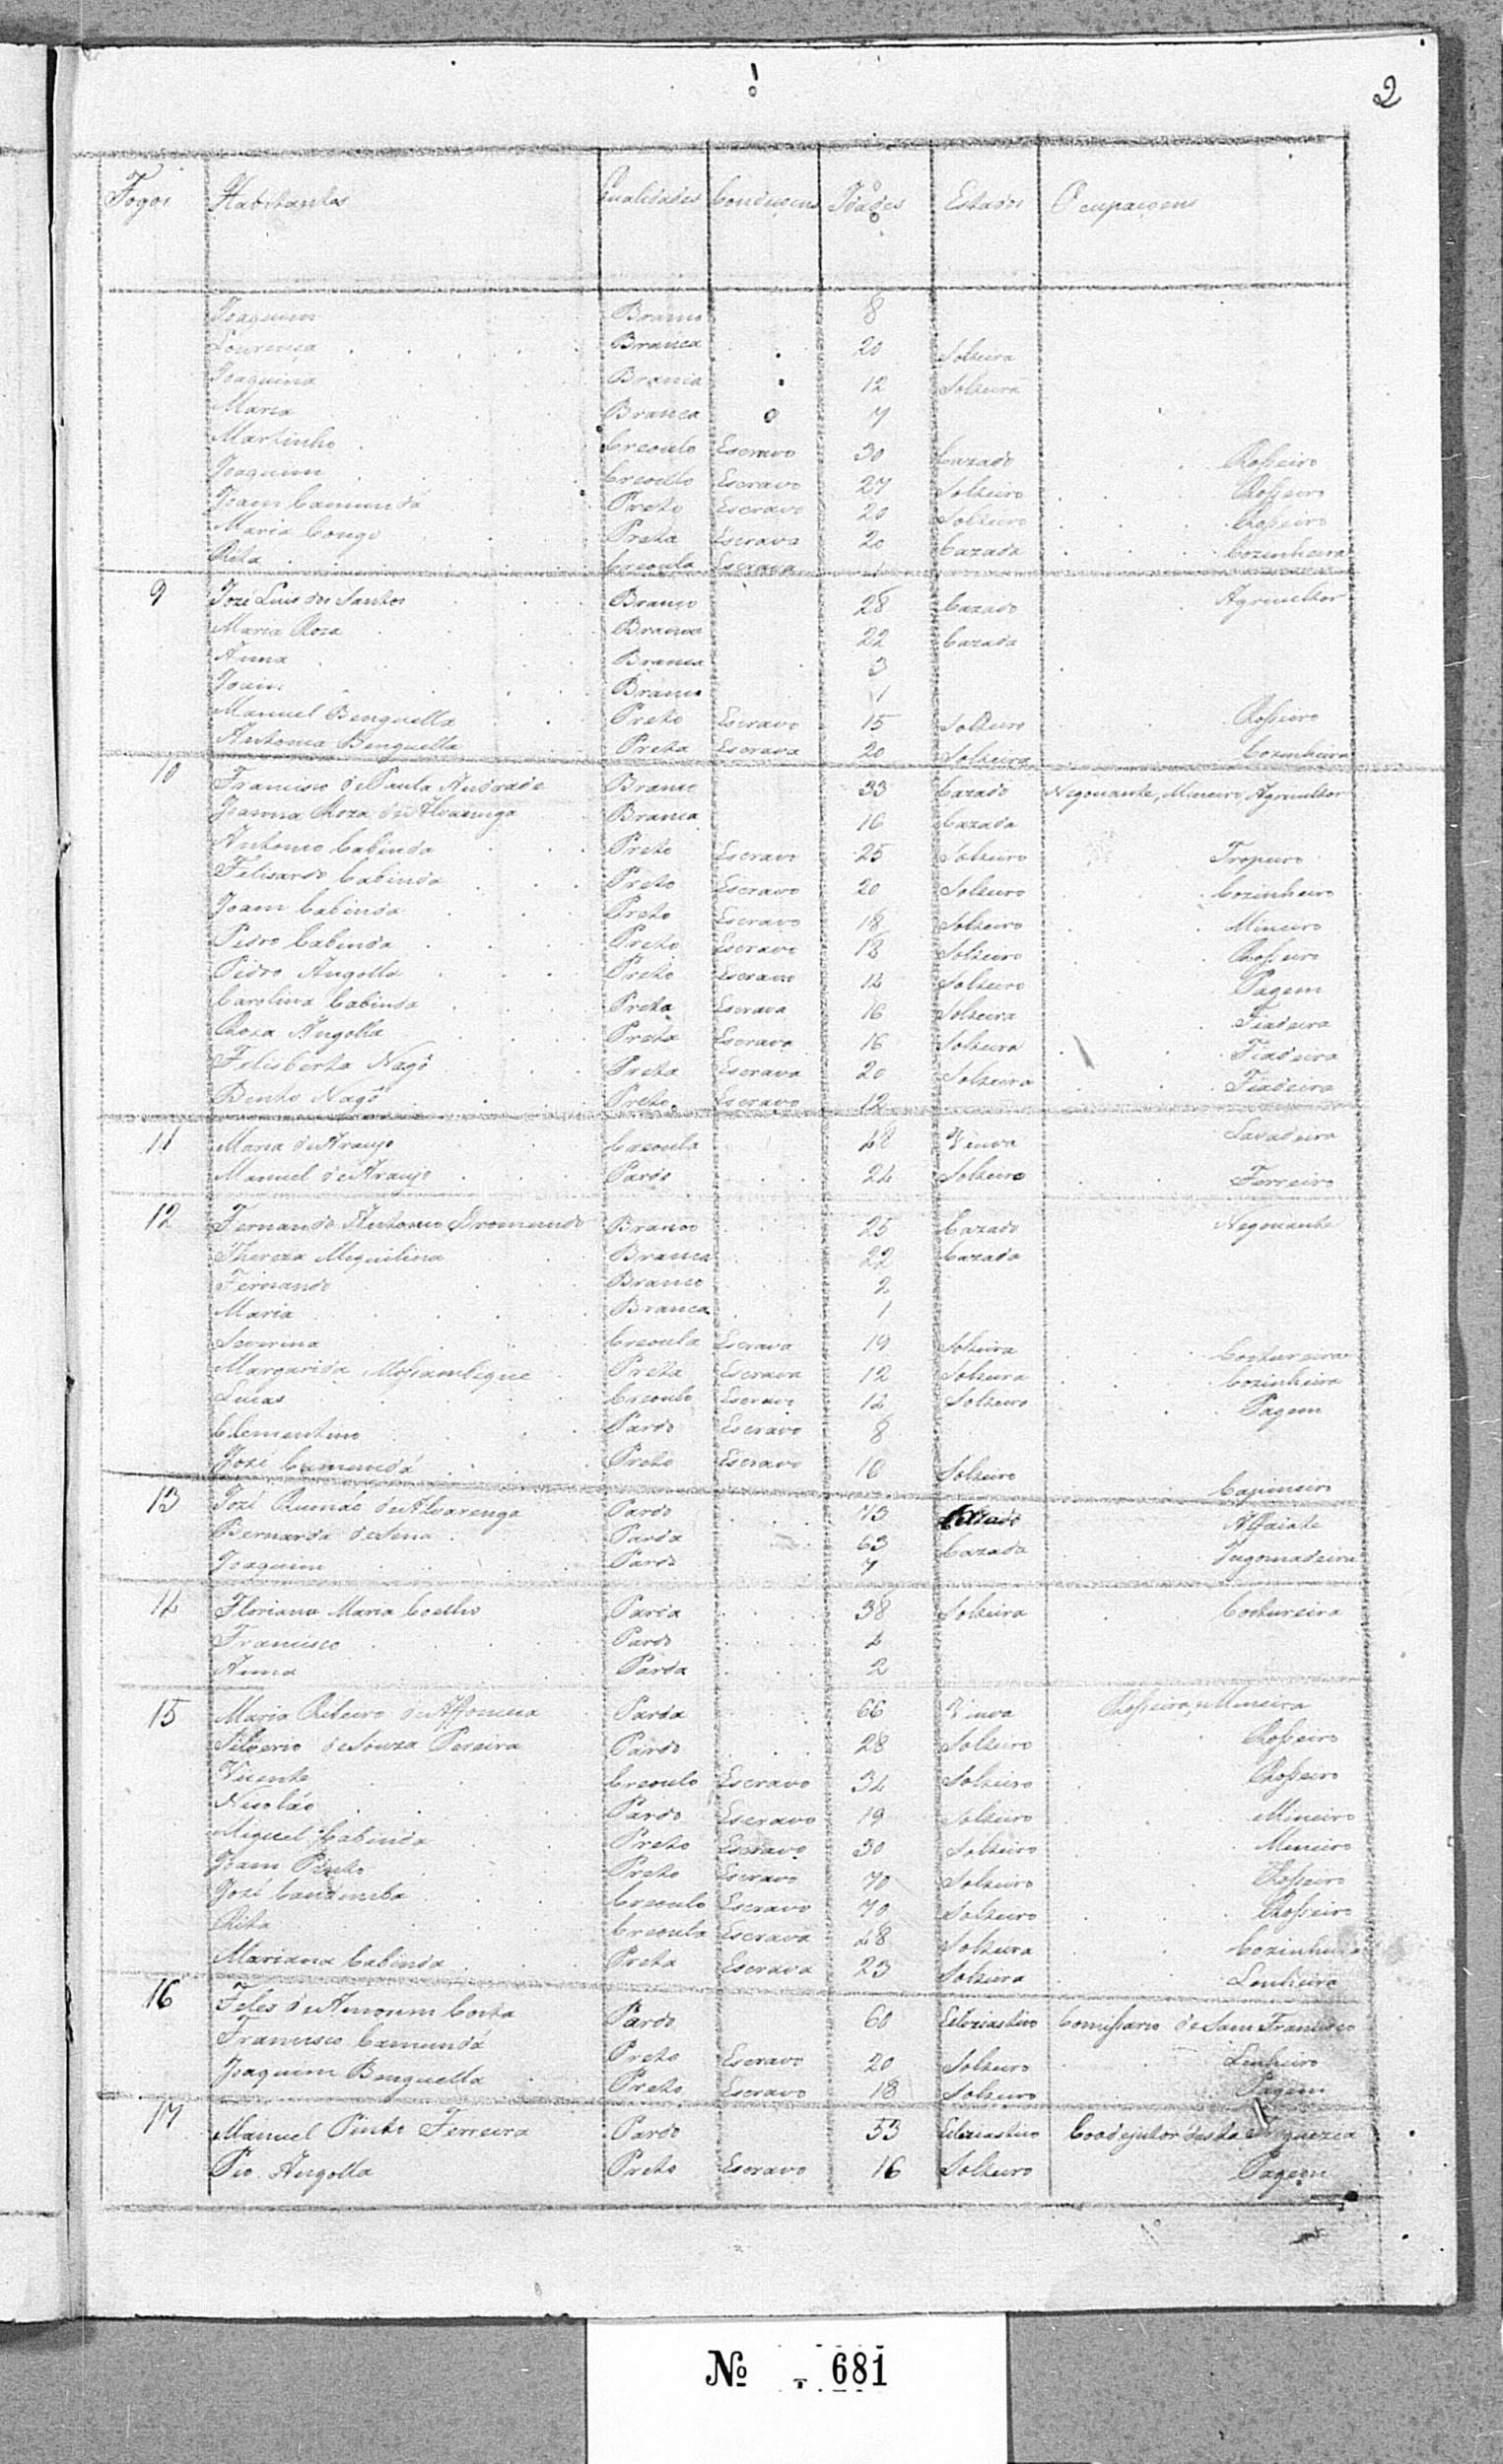 2
Fogos Habitantes Qualidades Condiçoens Idades Estados Ocupaçoens
Joaquim Branco 8
Lourença Branca 20 Solteira
Joaquina Branca 12 Solteira
Maria Branca 7
Martinho Creoulo Escravo 30 Cazado Rosseiro
Joaquim Creoulo Escravo 27 Solteiro Rosseiro
Joam Camundá Preto Escravo 20 Solteiro Rosseiro
Maria Congo Preta Escrava 20 Cazada Cozinheira
Rita Creoula Escrava 1
9 Jozé Luis dos Santos Branco 28 Cazado Agricultor
Maria Roza Branca 22 Cazada
Anna Branca 3
Joam Branco 1
Manuel Benguella Preto Escravo 15 Solteiro Rosseiro
Antonia Benguella Preta Escrava 20 Solteira Cozinheira
10 Francisco de Paula Andrade Branco 33 Cazado Negociante, Mineiro, Agricultor
Joanna Roza de Alvarenga Branca 16 Cazada
Antonio Cabinda Preto Escravo 25 Solteiro Tropeiro
Felisardo Cabinda Preto Escravo 20 Solteiro Cozinheiro
Joam Cabinda Preto Escravo 18 Solteiro Mineiro
Pedro Cabinda Preto Escravo 18 Solteiro Rosseiro
Pedro Angolla Preto Escravo 14 Solteiro Pagem
Carolina Cabinda Preta Escrava 16 Solteira Fiadeira
Roza Angolla Preta Escrava 16 Solteira Fiadeira
Felisberta Nagô Preta Escrava 20 Solteira Fiadeira
Bento Nagô Preto Escravo 12
11 Maria de Araujo Creoula 48 Viuva Lavadeira
Manuel de Araujo Pardo 24 Solteiro Ferreiro
12 Fernando Antonio Dromundo Branco 25 Cazado Negociante
Thereza Miquilina Branca 22 Cazada
Fernando Branco 2
Maria Branca 1
Severina Creoula Escrava 19 Solteira Costureira
Margarida Mossambique Preta Escrava 12 Solteira Cozinheira
Lucas Creoulo Escravo 12 Solteiro Pagem
Clementino Pardo Escravo 8
Jozé Camundá Preto Escravo 16 Solteiro Capineiro
13 Jozé de Alvarenga Pardo 73 Cazado Alfaiate
Bernarda de Sena Parda 63 Cazada Ingomadeira
Joaquim Pardo 7
14 Floriana Maria Coelho Parda 38 Solteira Costureira
Francisco Pardo 4
Anna Parda 2
15 Maria Ribeiro de Affonseca Parda 66 Viuva Rosseira, Mineira
Silverio de Souza Pereira Pardo 28 Solteiro Rosseiro
Vicente Creoulo Escravo 34 Solteiro Rosseiro
Nicoláo Pardo Escravo 19 Solteiro Mineiro
Miguel Cabinda Preto Escravo 30 Solteiro Mineiro
Joam Preto Preto Escravo 70 Solteiro Rosseiro
Jozé Creoulo Escravo 70 Solteiro Rosseiro
Rita Creoula Escrava 48 Solteira Cozinheira
Mariana Cabinda Preta Escrava 23 Solteira Lenheira
16 Felex de Amorim Costa Pardo 60 Ecleziastico Comissario de Sam Francisco
Francisco Camundá Preto Escravo 20 Solteiro Lenheiro
Joaquim Benguella Preto Escravo 18 Solteiro Pagem
17 Manuel Pinto Ferreira Pardo 53 Ecleziastico Coadejutor desta Freguezia
Pio Angolla Preto Escravo 16 Solteiro Pagem
Nº 681